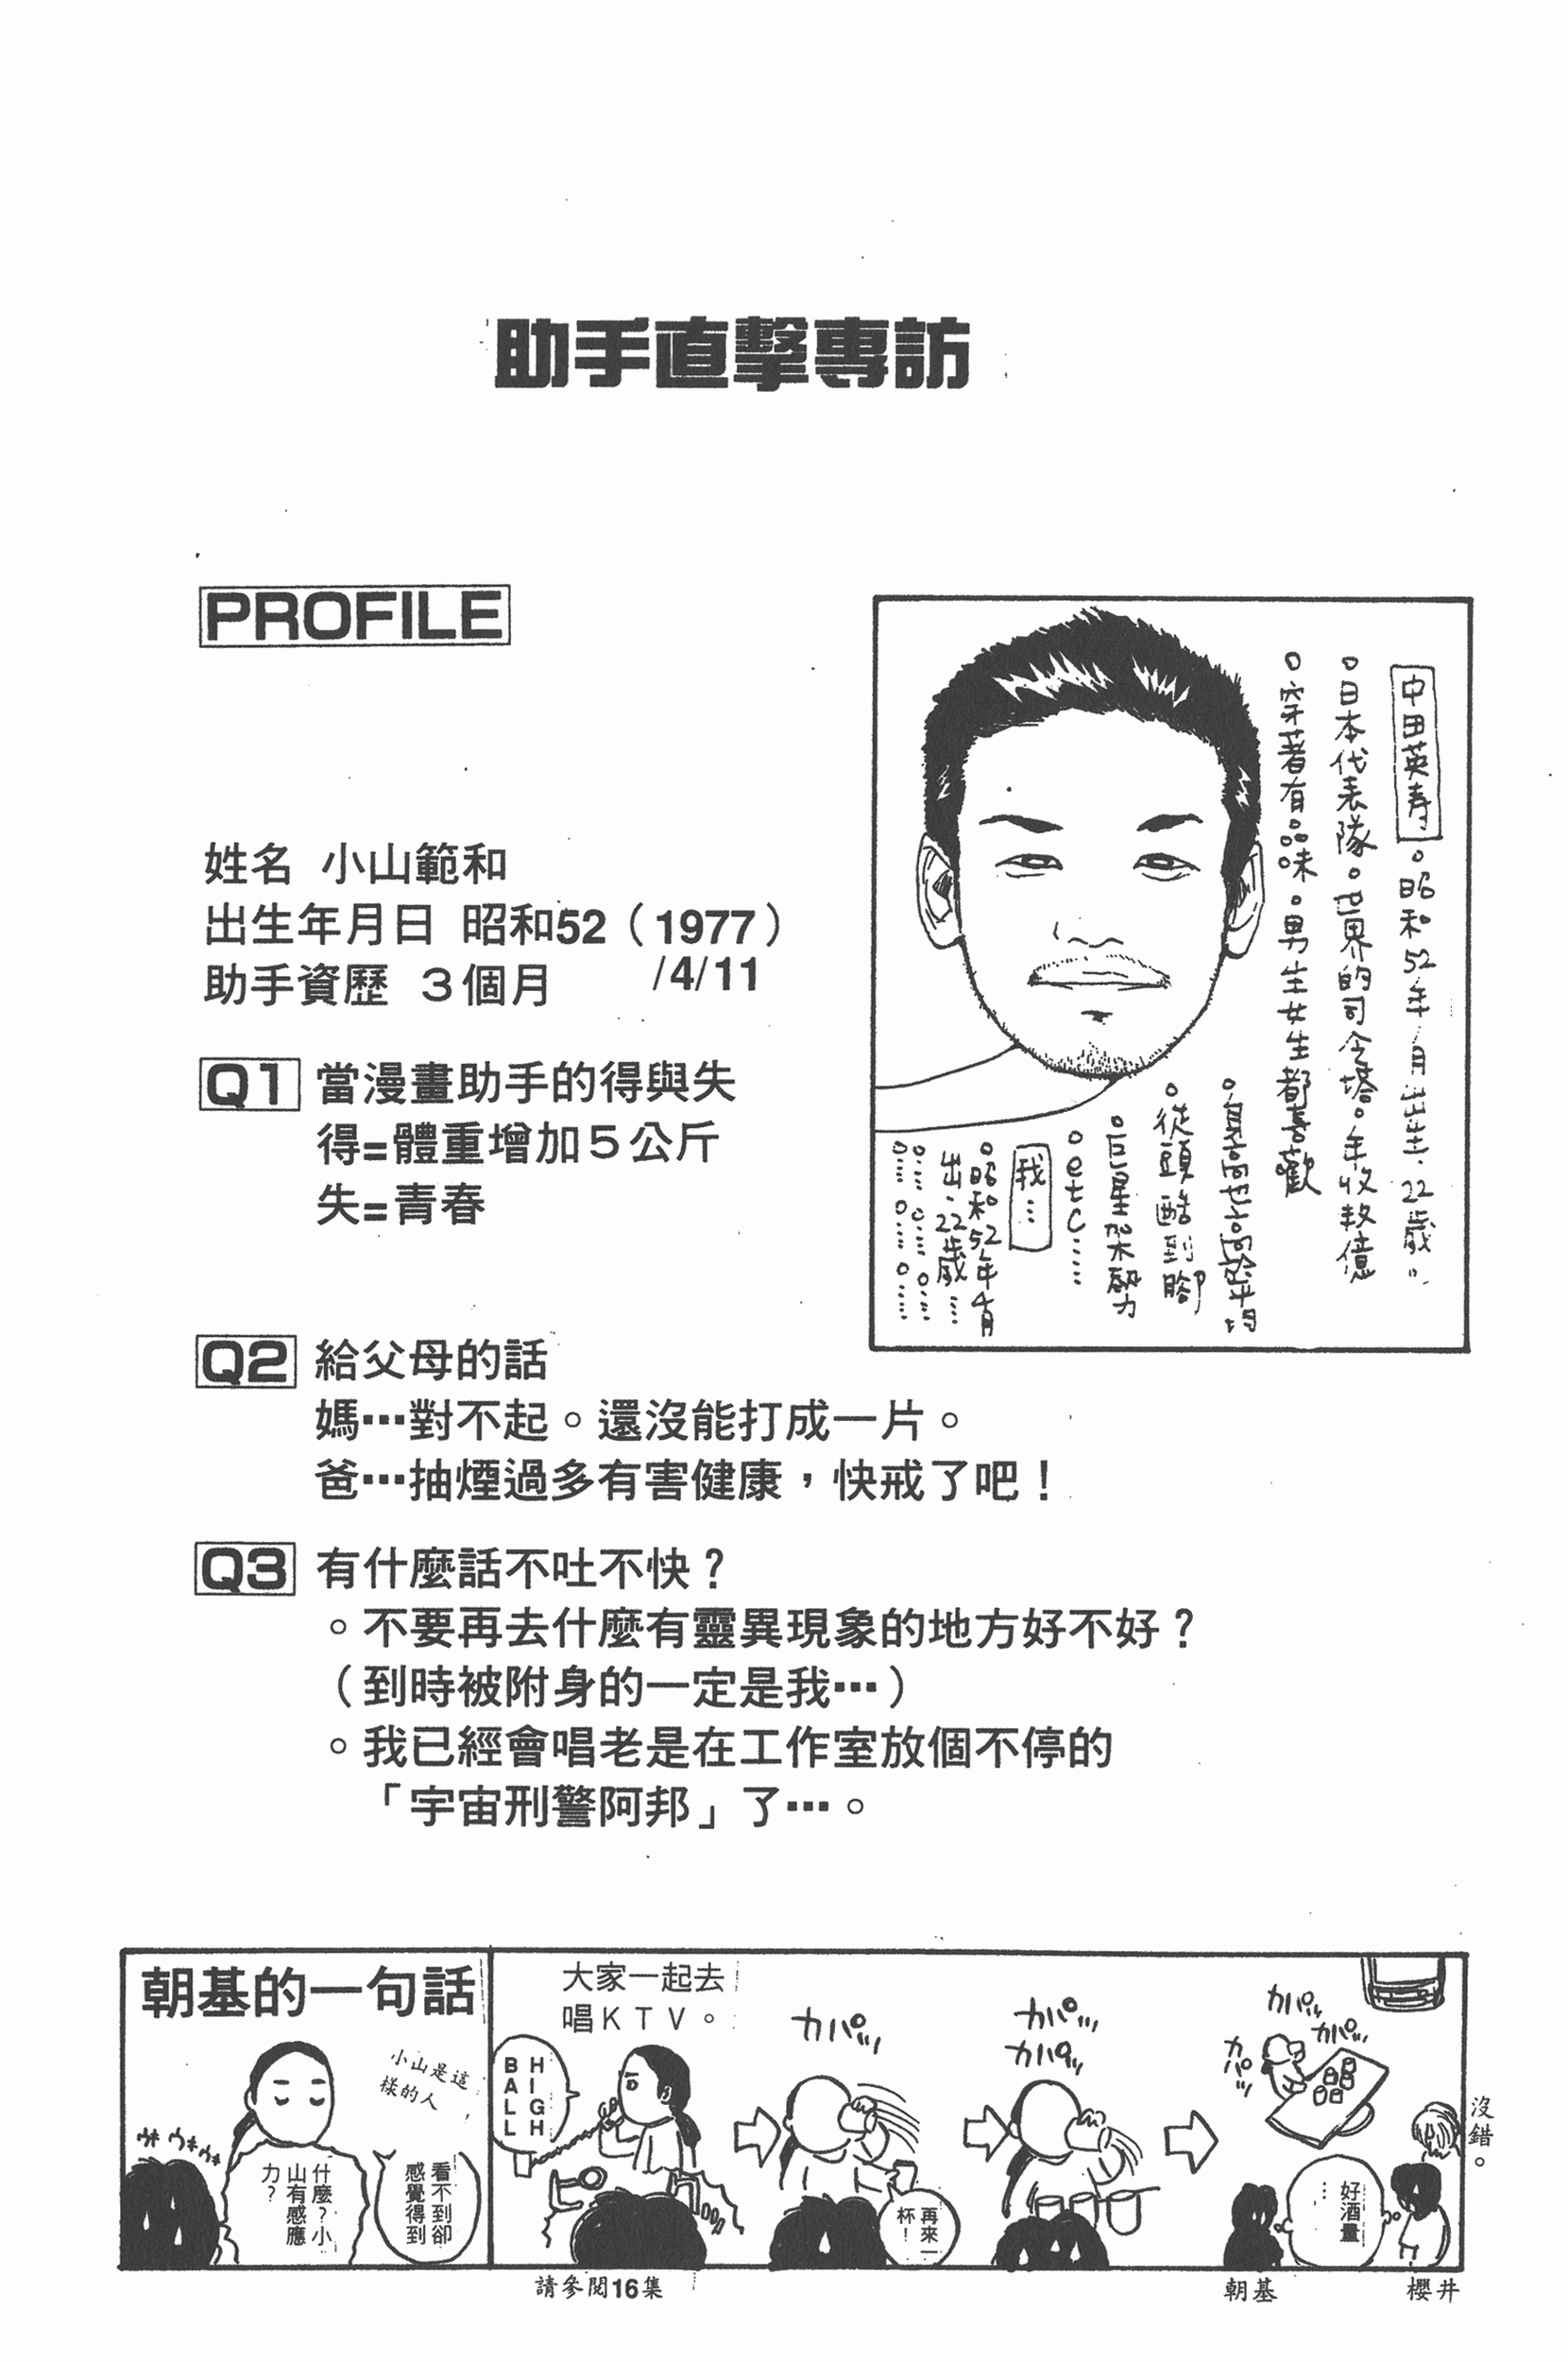 助手直擊專訪
PROFILE
姓名 小山範和
出生年月日 昭和52（1977）
/4/11
助手資歷 3個月
Q1 當漫畫助手的得與失
得=體重增加5公斤
失=青春
中田英寿
。昭和52年1月出生.22歲。
。日本代表隊。世界的司令塔。年收数億
。穿著有品味。男生女生都喜歡
。身高也高於平均
。從頭酷到腳
。巨星架勢力
。etc……
我…
。昭和52年4月
出.22歲…
Q2 給父母的話
媽…對不起。還沒能打成一片。
爸…抽煙過多有害健康，快戒了吧！
Q3 有什麼話不吐不快？
。不要再去什麼有靈異現象的地方好不好？
（到時被附身的一定是我…）
。我已經會唱老是在工作室放個不停的
「宇宙刑警阿邦」了…。
朝基的一句話
小山是這
樣的人
ウキウキ
看不到卻
感覺得到
什麼？小
山有感應
力？
大家一起去
唱KTV。
HIGH
BALL
カパッ
再來一
杯！
カパッ
カパッ
カパッ
カパッ
カパッ
好酒量
…
沒錯。
請參閱16集
朝基
櫻井